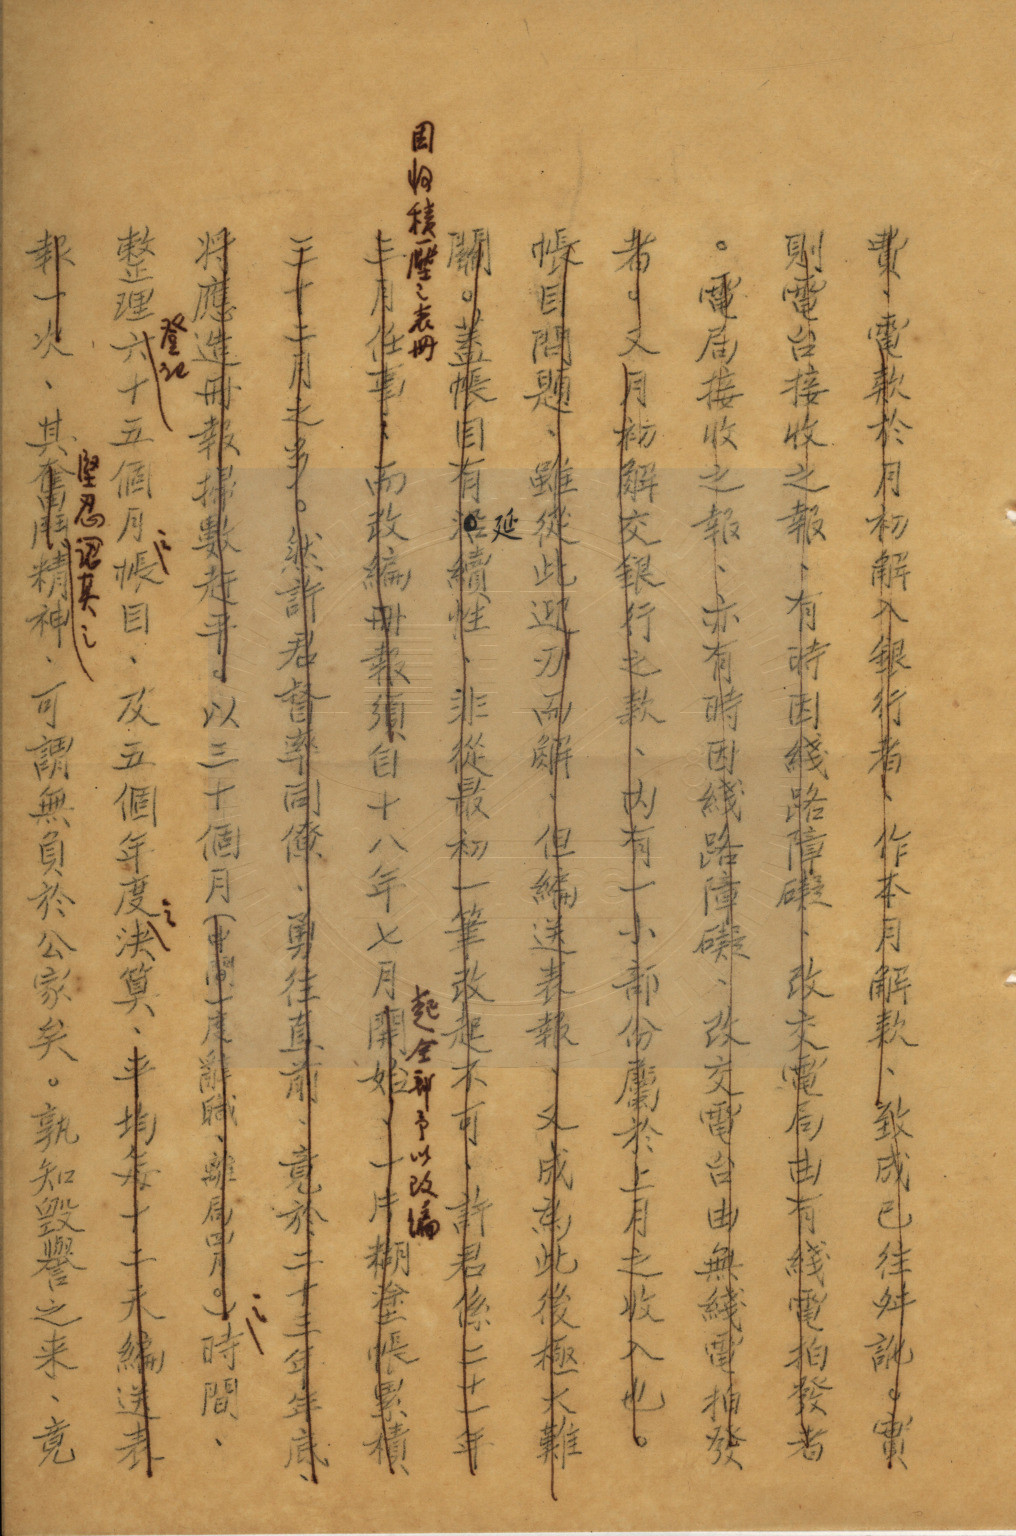 費、電款於月初解入銀行者、作本月解款、致成已往舛訛。實
則電台接收之報、有時因綫路障礙、改交電局由有綫電拍發者
。電局接收之報、亦有時因綫路障礙、改交電台由無綫電拍發
者。又月初解交銀行之款、內有一小部份屬於上月之收入也。
帳目問題、雖從此迎刃而解、但編送表報、又成為此後極大難
關。蓋帳目有沿續性、非從最初一筆改起不可、許君係二十一年
延
三月任事、而改編冊報須自十八年七月開始、一片糊塗帳累積
因將積壓之表冊
起全部予以改編
三十二月之多。然許君督率同僚、勇往直前、竟於二十三年年底、
將應造冊報掃數赶平。以三十個月(中間一度辭職、離局四月。)時間、
之
整理六十五個月帳目、及五個年度決算、平均每十二天編送表
登記
之
之
報一次、其奮鬥精神、可謂無負於公家矣。孰知毀譽之来、竟
堅忍
其之